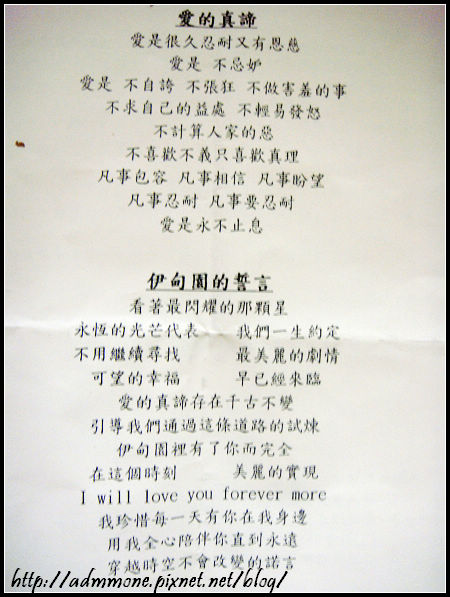 愛的真諦
愛是很久忍耐又有恩慈
愛是 不忌妒
愛是 不自誇 不張狂 不做害羞的事
不求自己的益處 不輕易發怒
不計算人家的惡
不喜歡不義只喜歡真理
凡事包容 凡事相信 凡事盼望
凡事忍耐 凡事要忍耐
愛是永不止息
伊甸園的誓言
看著最閃耀的那顆星
永恆的光芒代表 我們一生約定
不用繼續尋找 最美麗的劇情
可望的幸福 早已經來臨
愛的真諦存在千古不變
引導我們通過這條道路的試煉
伊甸園裡有了你而完全
在這個時刻 美麗的實現
I will love you forever more
我珍惜每一天有你在我身邊
用我全心陪伴你直到永遠
穿越時空不會改變的諾言
http://admmone.pixnet.net/blog/